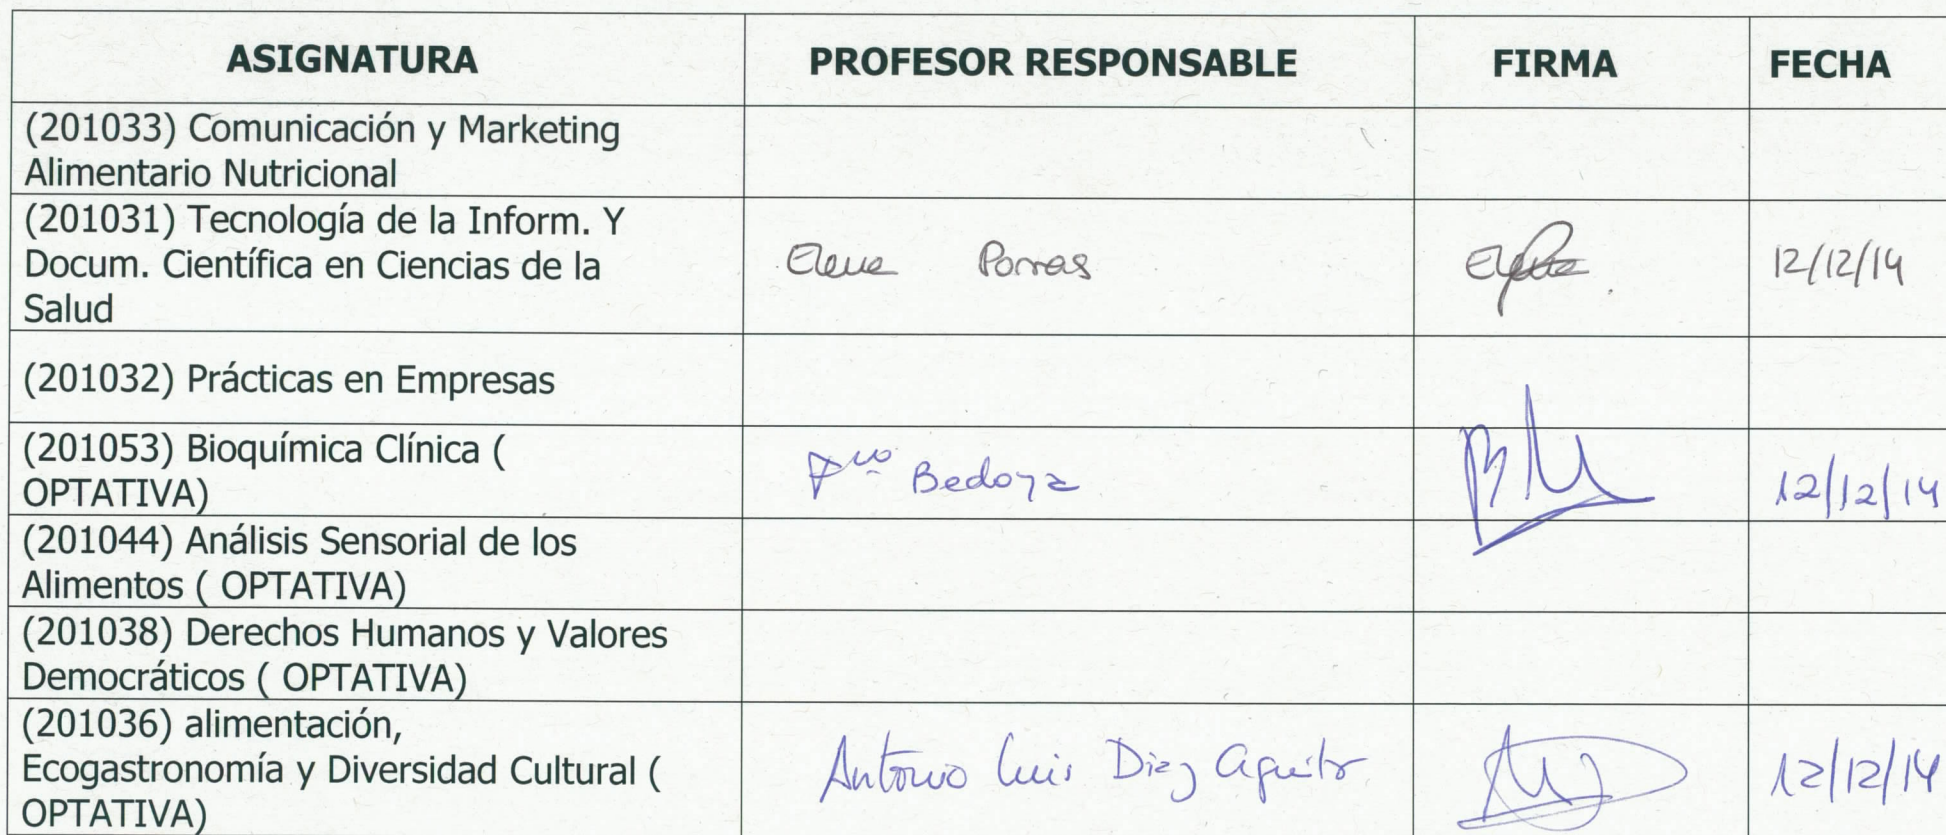 ASIGNATURA PROFESOR RESPONSABLE FIRMA FECHA
(201033) Comunicación y Marketing
Alimentario Nutricional
(201031) Tecnología de la Inform. Y
Docum. Científica en Ciencias de la
Salud
Elena Porras 12/12/14
(201032) Prácticas en Empresas
(201053) Bioquímica Clínica (
OPTATIVA)
Fco Bedoya 12/12/14
(201044) Análisis Sensorial de los
Alimentos ( OPTATIVA)
(201038) Derechos Humanos y Valores
Democráticos ( OPTATIVA)
(201036) alimentación,
Ecogastronomía y Diversidad Cultural (
OPTATIVA)
Antonio Luis Diaz Aguilar 12/12/14